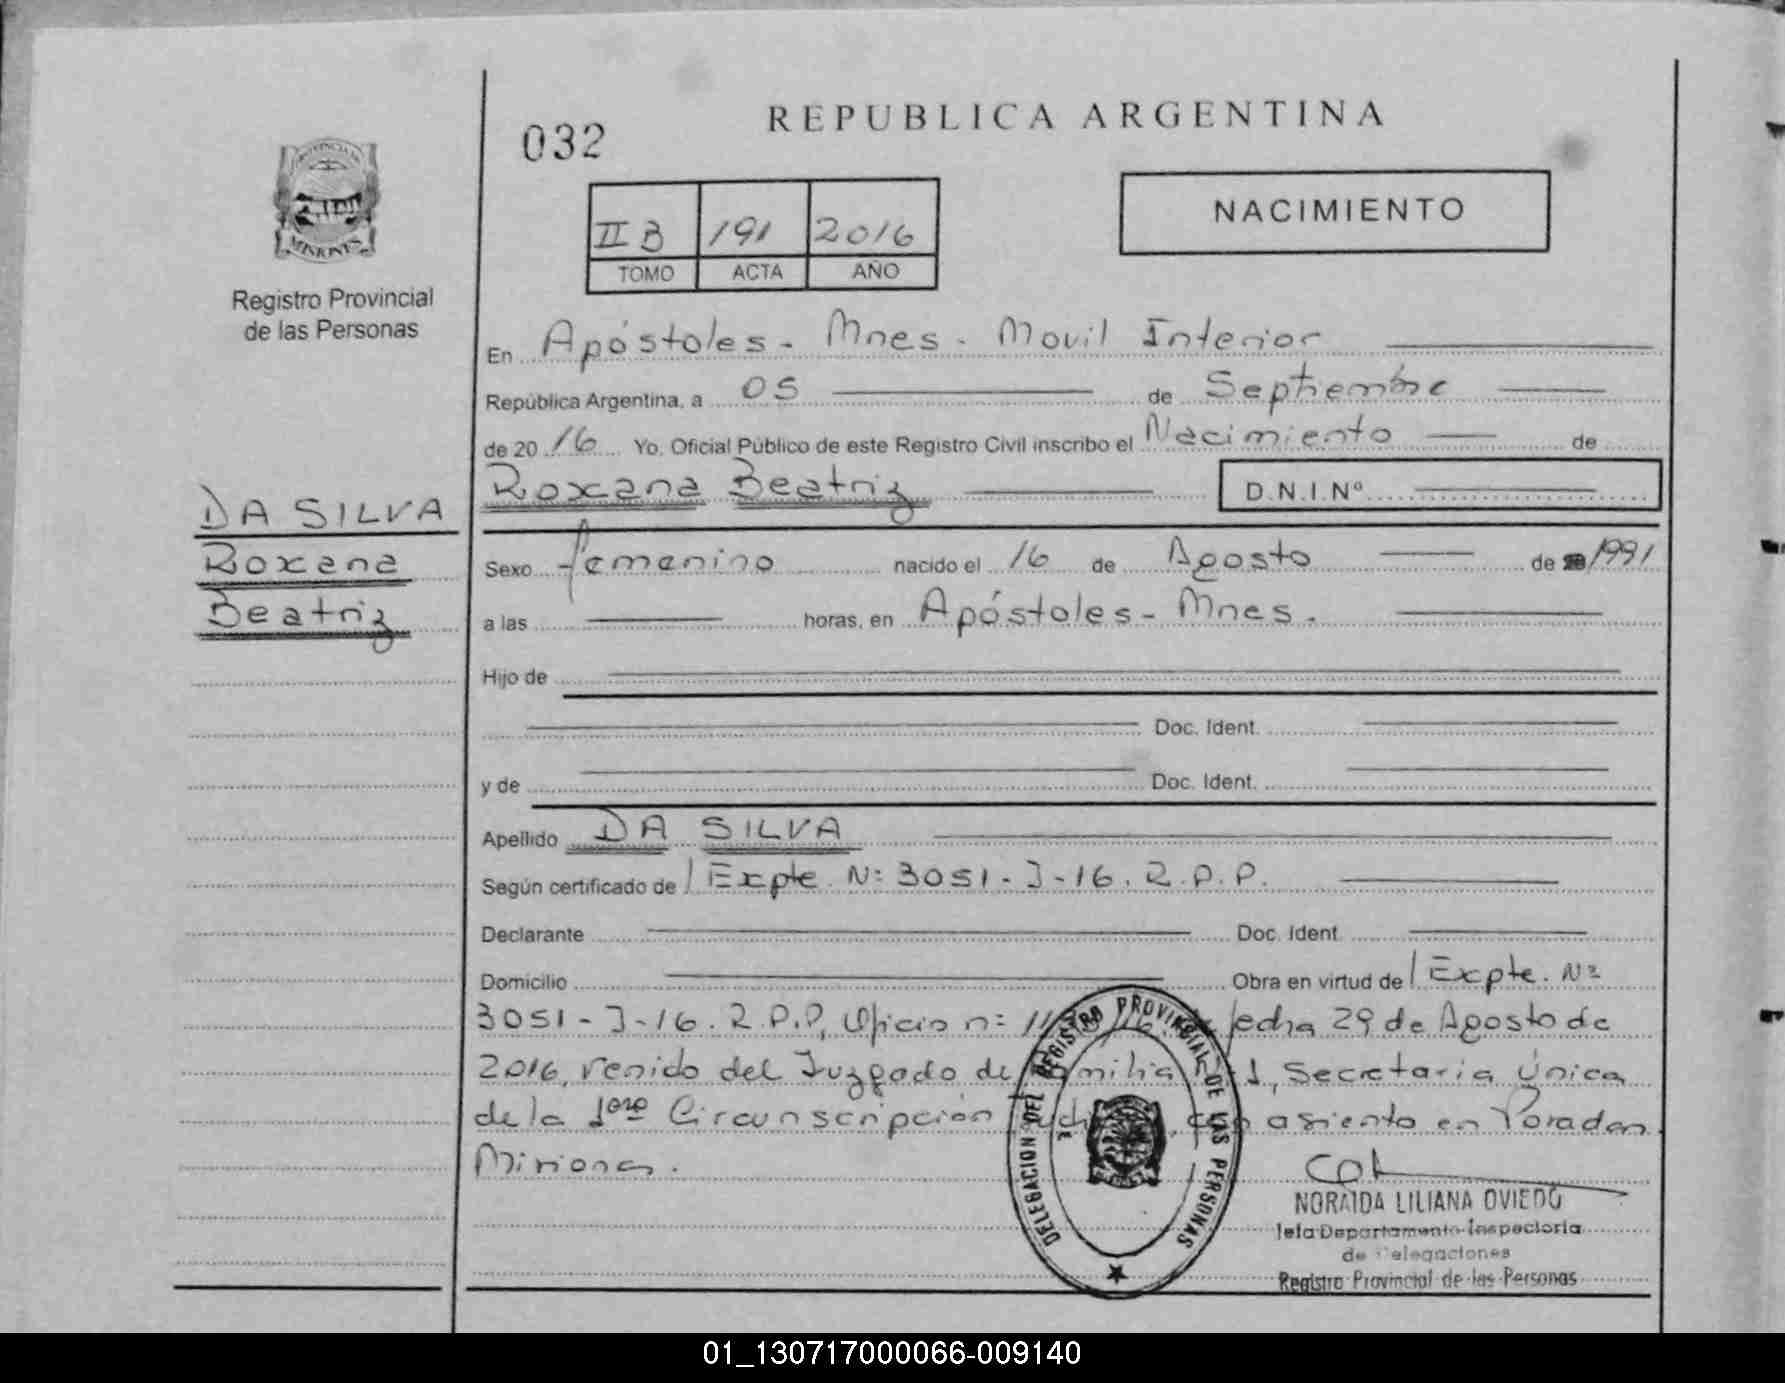 REPUBLICA ARGENTINA
032
NACIMIENTO
II B 191 2016
TOMO ACTA AÑO
PROVINCIA DE
MISIONES
Registro Provincial
de las Personas
En Apóstoles - Mnes - Movil Interior
República Argentina, a 05 de Septiembre
de 2016 Yo, Oficial Público de este Registro Civil inscribo el Nacimiento de
Roxana Beatriz D.N.I.Nº
DA SILVA
Roxana
Beatriz
Sexo femenino nacido el 16 de Agosto de 1991
a las horas, en Apóstoles - Mnes.
Hijo de
Doc. Ident.
y de Doc. Ident.
Apellido DA SILVA
Según certificado de Expte. Nº 3051-J-16. R.P.P.
Declarante Doc. Ident.
Domicilio Obra en virtud de Expte. Nº
3051-J-16. R.P.P, Oficio nº fecha 29 de Agosto de
2016, venido del Juzgado de Familia Nº 1, Secretaria Única
de la 1era Circunscripción con asiento en Posadas
Misiones.
DELEGACION DEL REGISTRO PROVINCIAL DE LAS PERSONAS
NORAIDA LILIANA OVIEDO
Jefa Departamento Inspectoria
de Delegaciones
Registro Provincial de las Personas
01_130717000066-009140